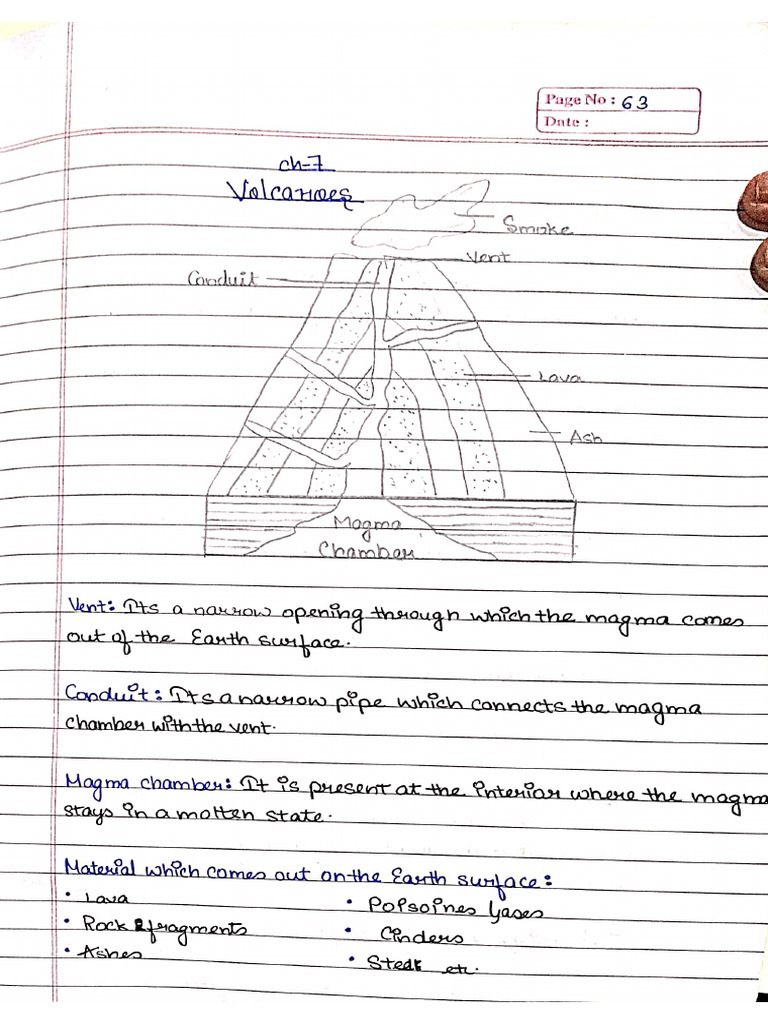 Page No : 63
Date :
Ch-7
Volcanoes
Smoke
Vent
Conduit
Lava
Ash
Magma
Chamber
Vent: Its a narrow opening through which the magma comes
out of the Earth surface.
Conduit: Its a narrow pipe which connects the magma
chamber with the vent.
Magma chamber: It is present at the interior where the magma
stays in a molten state.
Material which comes out on the Earth surface:
• Lava • Poisoines Gases
• Rock fragments • Cinders
• Ashes • etc.